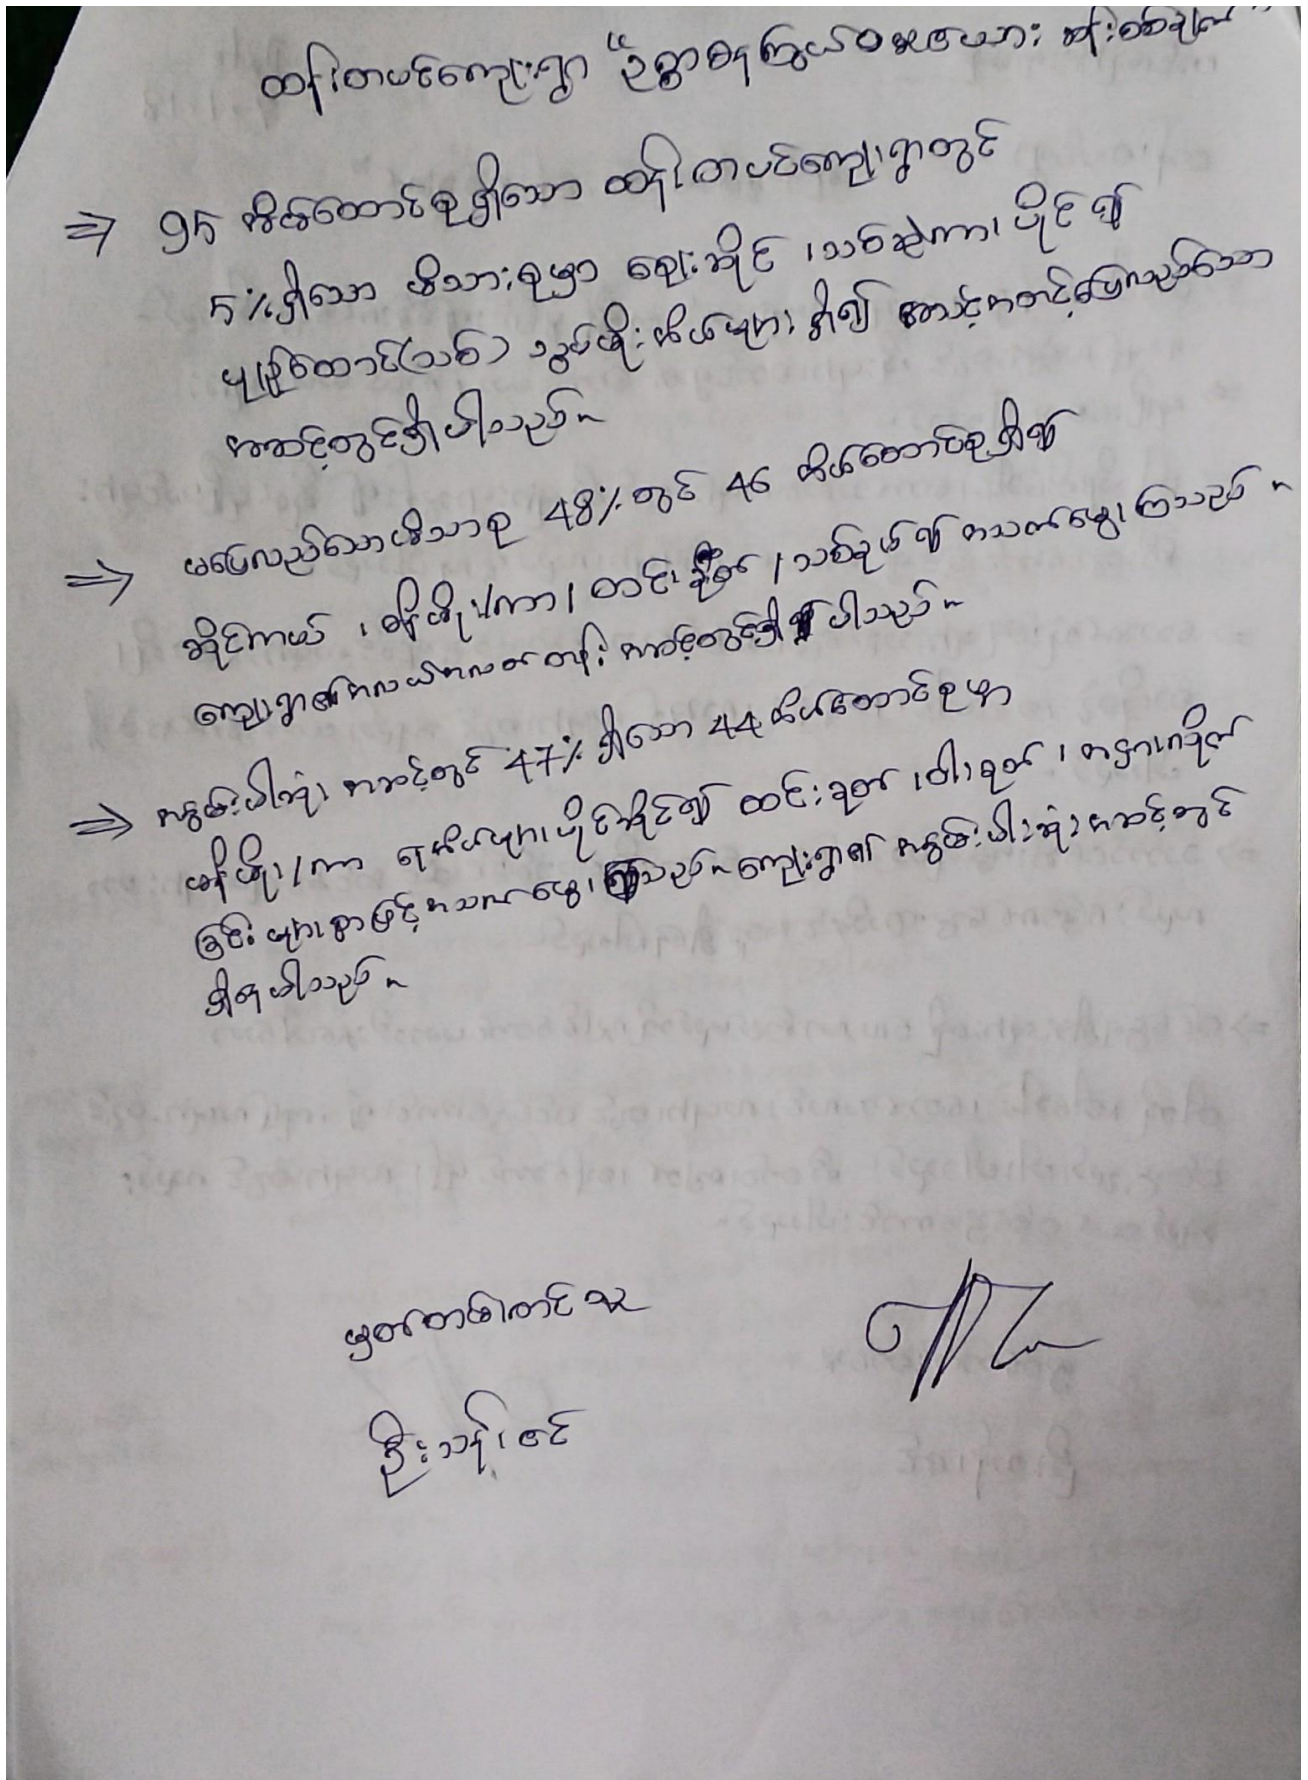 ထန်းတပင်ကျေးရွာ "ဥစ္စာဓနကြွယ်ဝမှုဇယား ဆန်းစစ်ချက်"
⇒ 95 အိမ်ထောင်စုရှိသော ထန်းတပင်ကျေးရွာတွင်
5% ရှိသော မိသားစုမှာ ဈေးဆိုင် ၊ သစ်ဆွဲကား ပိုင်၍
မျှဉ်ထောင်(သစ်) သွပ်မိုးအိမ်များ ရှိ၍ အသင့်အတင့်ပြေလည်သော
အဆင့်တွင်ရှိပါသည်။
⇒ မပြေလည်သောမိသားစု 48% တွင် 46 အိမ်ထောင်စုရှိ၍
ဆိုင်ကယ် ၊ အိမ်မိုး/ကာ / ထင်းခုတ် / သစ်ခုယ်၍ အသက်မွေးကြသည်။
ကျေးရွာ၏အလယ်အလတ်တန်း အဆင့်တွင်ရှိပါသည်။
⇒ အနွမ်းပါးဆုံး အဆင့်တွင် 47% ရှိသော 44 အိမ်ထောင်စုမှာ
မိုး/ကာ အိမ်များပိုင်ဆိုင်၍ ထင်းခုတ် ၊ ဝါးခုတ် ၊
ခြင်း များစွာဖြင့် အသက်မွေးကြသည်။ ကျေးရွာ၏ အနွမ်းပါးဆုံးအဆင့်တွင်
ရှိနေပါသည်။
မှတ်တမ်းတင်သူ
ဦးသန်းဇင်